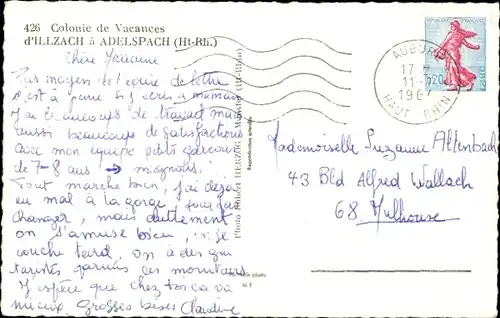 426 Colonie de Vacances
d'ILLZACH à ADELSPACH (Ht-Rh.)
Chère
Pas moyen d'écrire de lettre
c'est à peine si j'écris à maman
J'ai beaucoup de travail mais
aussi beaucoup de satisfactions
avec mon équipe petits garçons
de 7-8 ans → mignons.
Tout marche bien, j'ai déjà
eu mal à la gorge, pour pas
changer, mais autrement
on s'amuse bien, je
couche tard, on a des gui
taristes parmi ces moniteurs
J'espère que chez toi ca va
mieux. Grosses bises Claudine
Photo Robert HERZOG, Munster (Ht-Rhin)
Reproduction interdite
REPUBLIQUE FRANÇAISE
POSTES
AUBURE
17 H
11-7
1967
HAUT RHIN
Mademoiselle Suzanne Altenbach
43 Bld Alfred Wallach
68 Mulhouse